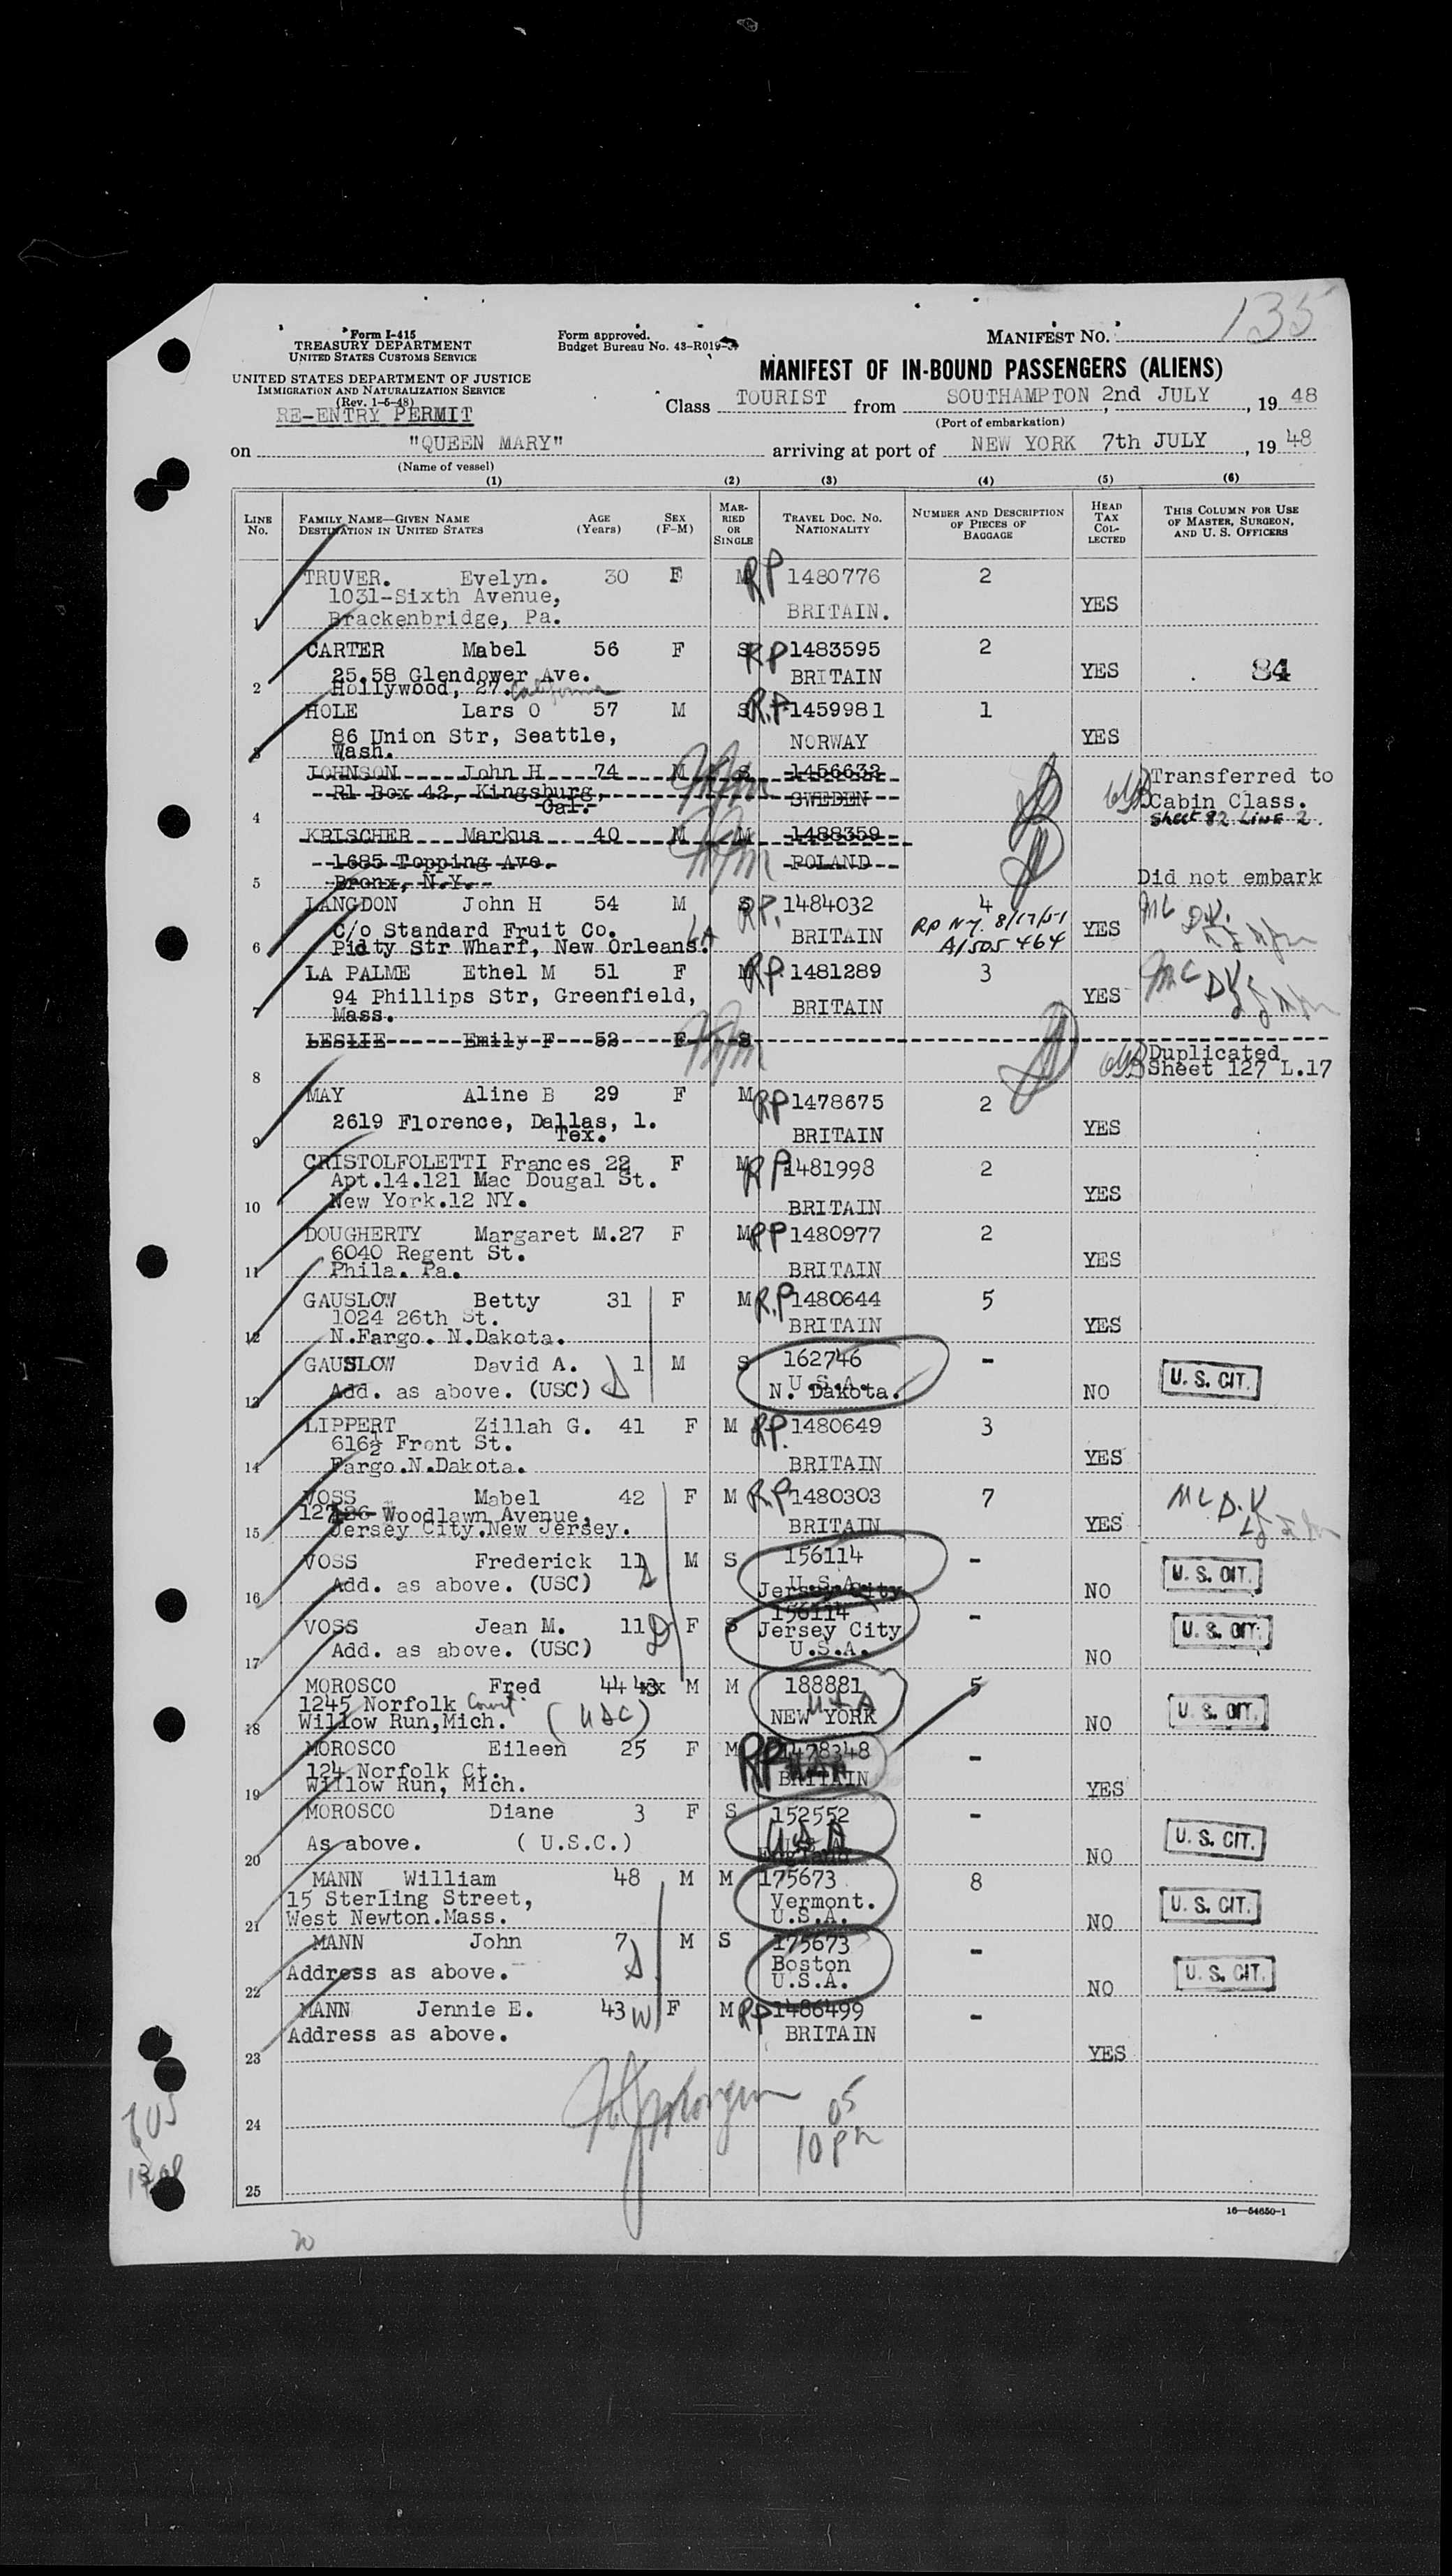 135
Form I-415
TREASURY DEPARTMENT
UNITED STATES CUSTOMS SERVICE
Form approved.
Budget Bureau No. 43-R019-
MANIFEST NO.
UNITED STATES DEPARTMENT OF JUSTICE
IMMIGRATION AND NATURALIZATION SERVICE
(Rev. 1-6-48)
RE-ENTRY PERMIT
MANIFEST OF IN-BOUND PASSENGERS (ALIENS)
Class TOURIST from SOUTHAMPTON, 2nd JULY, 1948
(Port of embarkation)
on "QUEEN MARY" arriving at port of NEW YORK 7th JULY, 1948
(Name of vessel)
(1) (2) (3) (4) (5) (6)
LINE No. FAMILY NAME—GIVEN NAME DESTINATION IN UNITED STATES AGE (Years) SEX (F-M) MARRIED OR SINGLE TRAVEL DOC. NO. NATIONALITY NUMBER AND DESCRIPTION OF PIECES OF BAGGAGE HEAD TAX COLLECTED THIS COLUMN FOR USE OF MASTER, SURGEON, AND U. S. OFFICERS
TRUVER. Evelyn. 30 F M RP 1480776 2
1031-Sixth Avenue, BRITAIN. YES
1 Brackenbridge, Pa.
CARTER Mabel 56 F S RP 1483595 2
25.58 Glendower Ave. BRITAIN YES 84
2 Hollywood, 27. California
HOLE Lars O 57 M S R.P 1459981 1
86 Union Str, Seattle, NORWAY YES
3 Wash.
JOHNSON John H 74 M S 1456632 Transferred to
R1 Box 42, Kingsburg, SWEDEN Cabin Class.
4 Cal. Sheet 82 Line 2.
KRISCHER Markus 40 M M 1488359
1685 Topping Ave. POLAND
5 Bronx, N.Y. Did not embark
LANGDON John H 54 M S RP. 1484032 4
C/o Standard Fruit Co. BRITAIN RP NY. 8/17/51 YES
6 Pidty Str Wharf, New Orleans. LA A/505 464
LA PALME Ethel M 51 F M RP. 1481289 3
94 Phillips Str, Greenfield, BRITAIN YES
7 Mass.
LESLIE Emily F 52 F S
8 Duplicated
Sheet 127 L.17
MAY Aline B 29 F M RP 1478675 2
2619 Florence, Dallas, 1. BRITAIN YES
9 Tex.
CRISTOLFOLETTI Frances 22 F M RP 1481998 2
Apt.14.121 Mac Dougal St. YES
10 New York.12 NY. BRITAIN
DOUGHERTY Margaret M. 27 F M RP 1480977 2
6040 Regent St. YES
11 Phila. Pa. BRITAIN
GAUSLOW Betty 31 F M R.P 1480644 5
1024 26th St. BRITAIN YES
12 N.Fargo. N.Dakota.
GAUSLOW David A. 1 M S 162746 -
U.S.A. U. S. CIT.
13 Add. as above. (USC) N. Dakota. NO
LIPPERT Zillah G. 41 F M RP. 1480649 3
616½ Front St. YES
14 Fargo.N.Dakota. BRITAIN
VOSS Mabel 42 F M R.P 1480303 7
127 Woodlawn Avenue, BRITAIN YES
15 Jersey City.New Jersey.
VOSS Frederick 11 M S 156114 -
Add. as above. (USC) U.S.A. U. S. CIT.
16 Jersey City NO
VOSS Jean M. 11 F S 156114 -
Jersey City U. S. CIT.
17 Add. as above. (USC) U.S.A. NO
MOROSCO Fred 44 M M 188881 5
1245 Norfolk Court USA U. S. CIT.
18 Willow Run,Mich. (USC) NEW YORK NO
MOROSCO Eileen 25 F M RP 1478348 -
124 Norfolk Ct. BRITAIN
19 Willow Run, Mich. YES
MOROSCO Diane 3 F S 152552 -
As above. (U.S.C.) USA U. S. CIT.
20 England NO
MANN William 48 M M 175673 8
15 Sterling Street, Vermont. U. S. CIT.
21 West Newton.Mass. U.S.A. NO
MANN John 7 M S 175673 -
Boston
22 Address as above. U.S.A. NO U. S. CIT.
MANN Jennie E. 43 W F M RP 1486499 -
Address as above. BRITAIN
23 YES
24
05
10 pm
25
16—54650-1
20